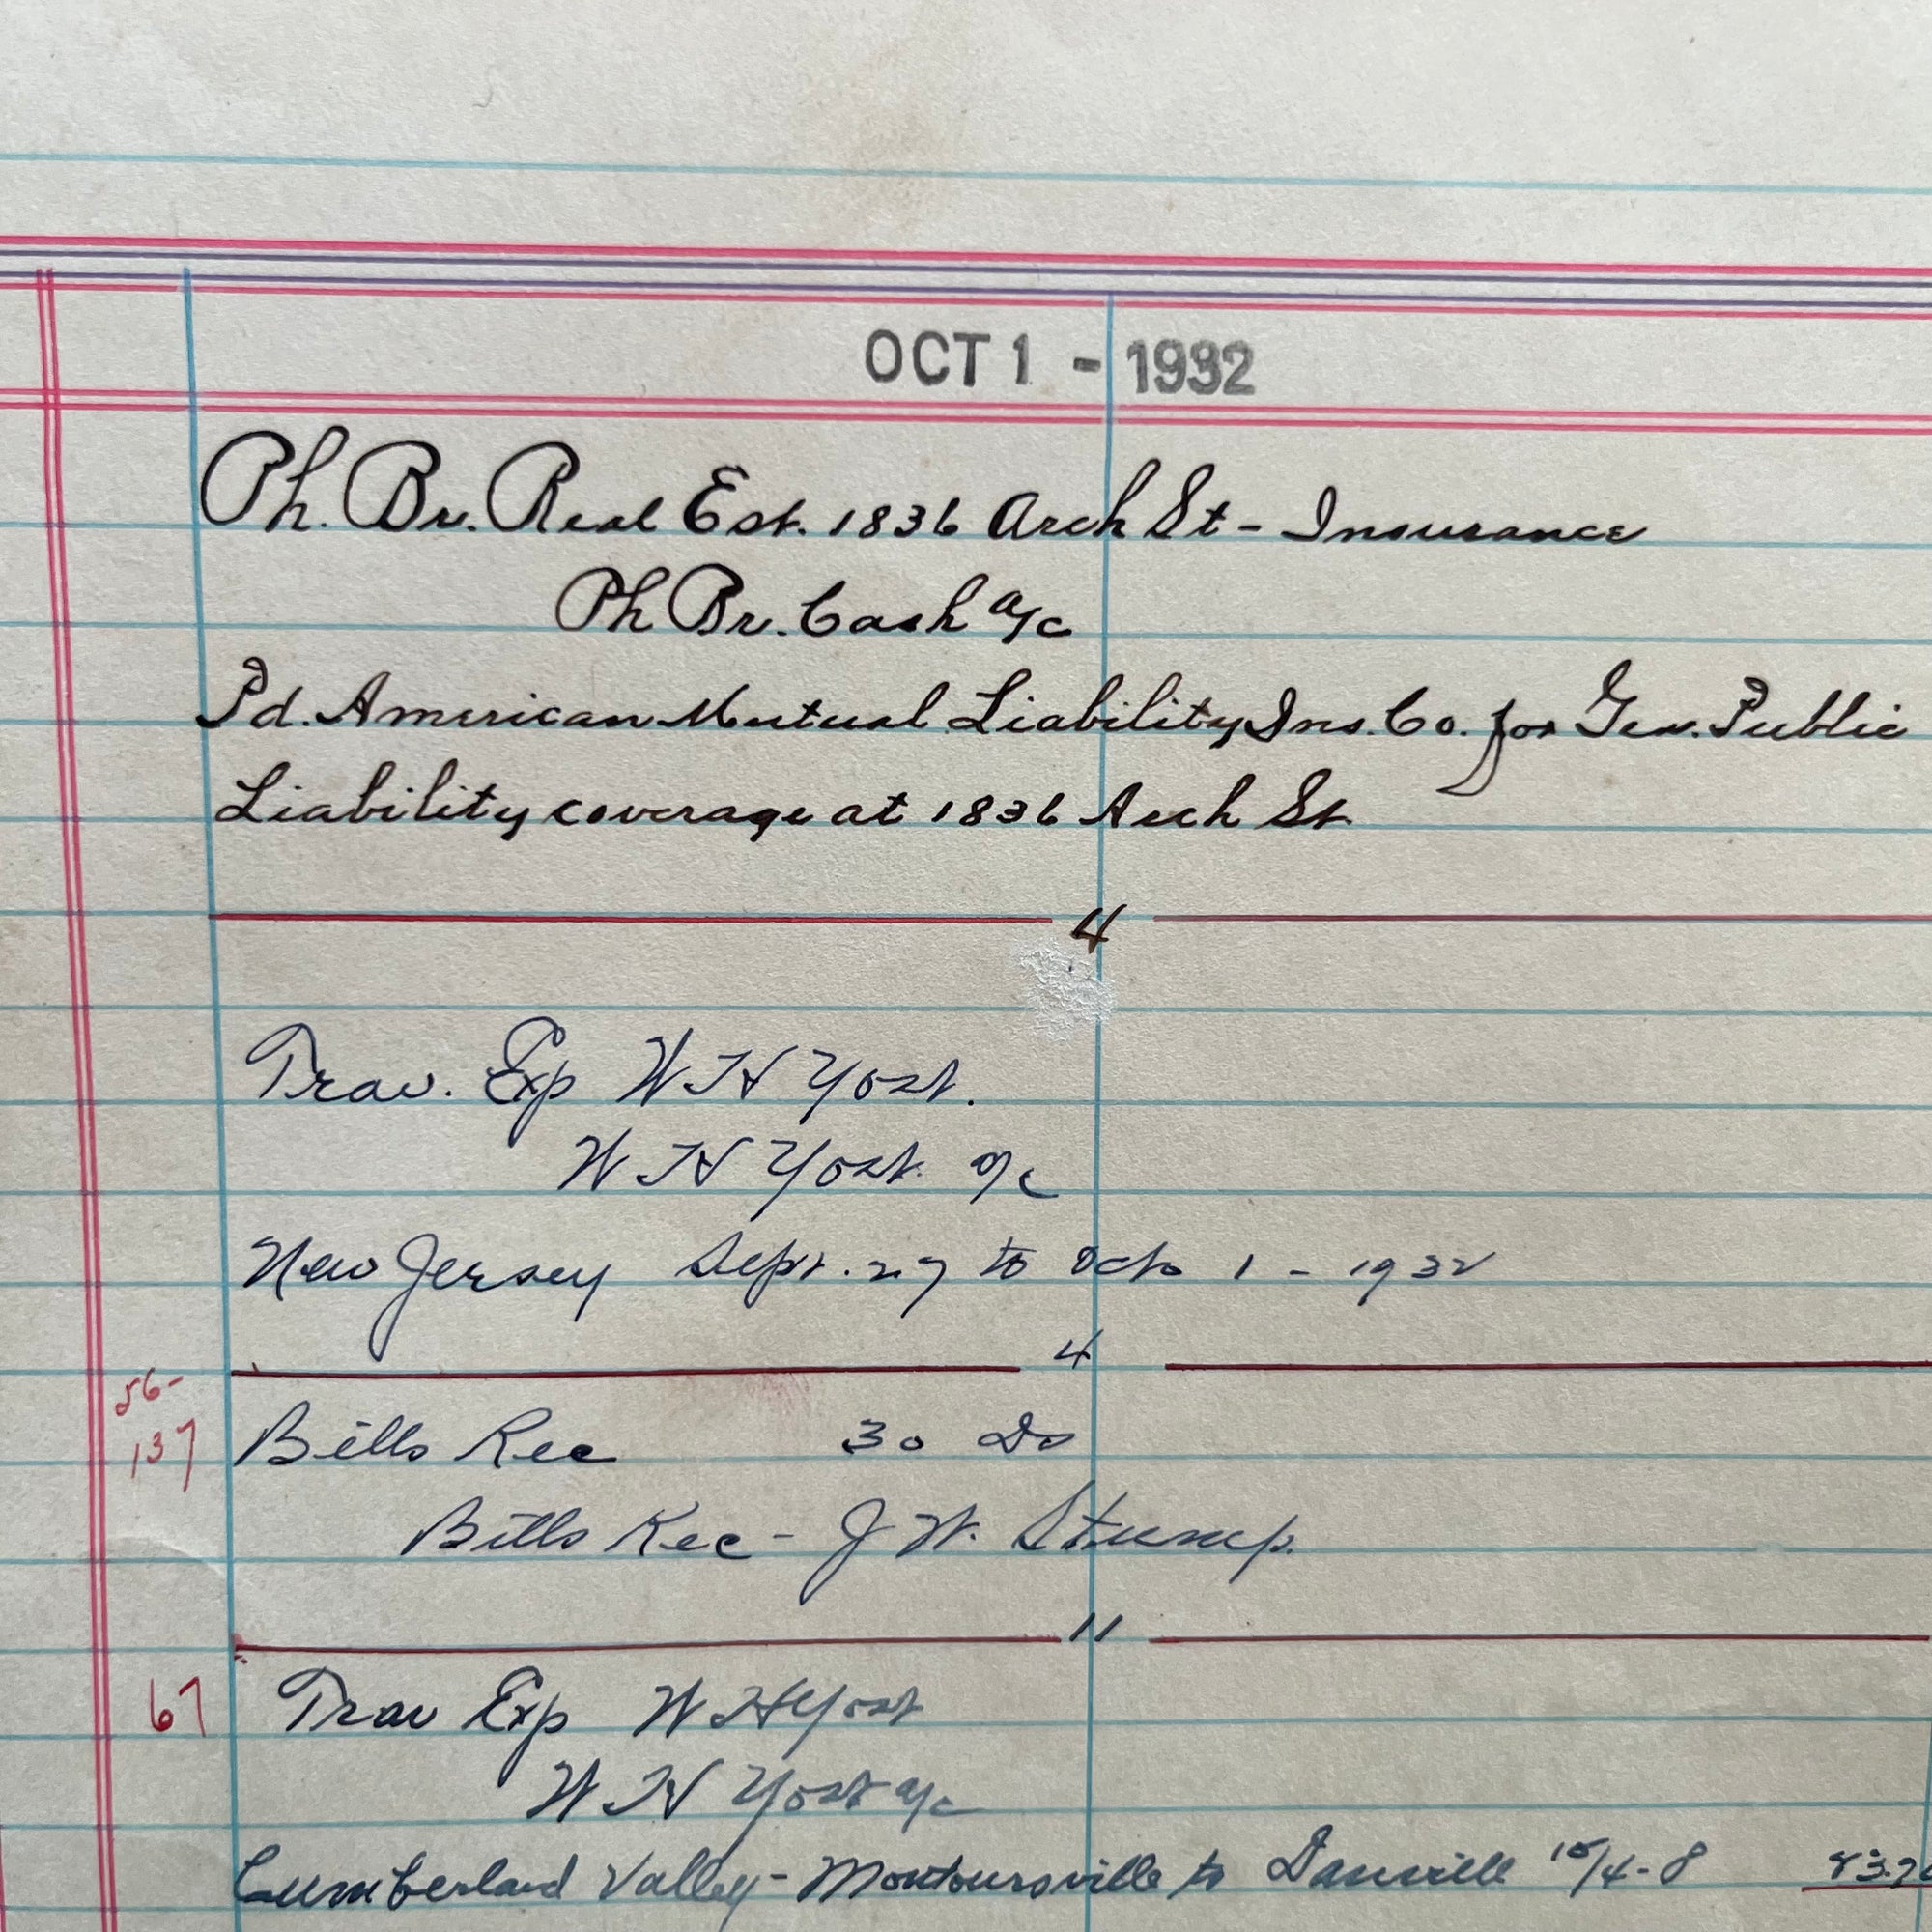 OCT 1 - 1932
Ph. Br. Real Est. 1836 Arch St - Insurance
Ph Br. Cash a/c
Pd. American Mutual Liability Ins. Co. for Gen. Public
Liability coverage at 1836 Arch St.
4
Trav. Exp W H Yost.
W H Yost. a/c
New Jersey Sept. 27 to Oct 1 - 1932
4
56-
137 Bills Rec 30 Ds
Bills Rec - J W. Stump.
11
67 Trav Exp W H Yost
W H Yost a/c
Cumberland Valley - Montoursville to Danville 10/4-8